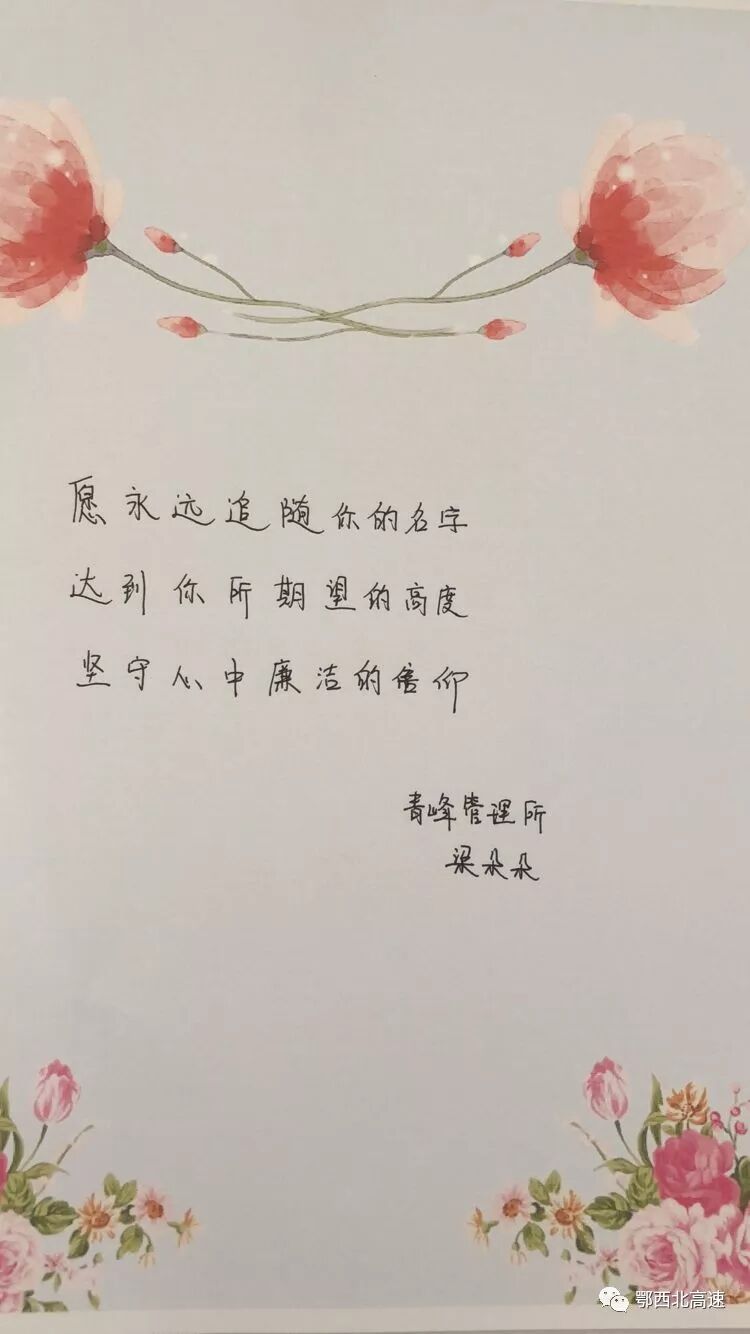 愿永远追随你的名字
达到你所期望的高度
坚守心中廉洁的信仰
青峰管理所
梁朵朵
鄂西北高速